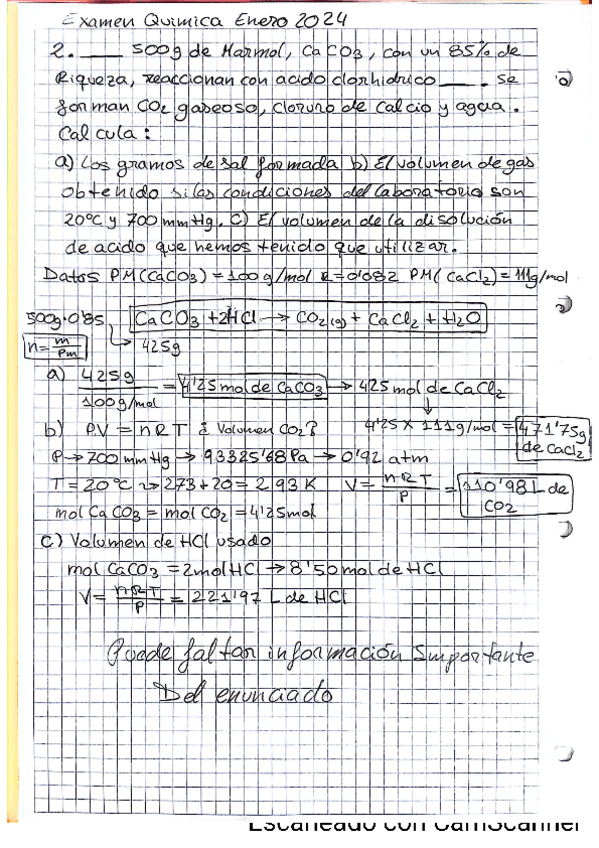 Examen Quimica Enero 2024
2. ____ 500g de Marmol, CaCO3, con un 85% de
Riqueza, reaccionan con acido clorhidrico ____. se
forman CO2 gaseoso, cloruro de calcio y agua.
Calcula:
a) Los gramos de sal formada b) El volumen de gas
obtenido si las condiciones del laboratorio son
20ºC y 700 mmHg. C) El volumen de la disolución
de acido que hemos tenido que utilizar.
Datos PM(CaCO3) = 100 g/mol R=0'082 PM(CaCl2)=111g/mol
500g·0'85 CaCO3 + 2HCl → CO2(g) + CaCl2 + H2O
n = m/Pm → 425g
a) 425g/100g/mol = 4'25 mol de CaCO3 → 425 mol de CaCl2
4'25 x 111g/mol = 471'75g de CaCl2
b) PV = nRT ¿ Volumen CO2?
P → 700 mmHg → 93325'68 Pa → 0'92 atm
T = 20ºC → 273+20 = 293K V = nRT/P = 110'98 L de CO2
mol CaCO3 = mol CO2 = 4'25mol
C) Volumen de HCl usado
mol CaCO3 = 2mol HCl → 8'50 mol de HCl
V = nRT/P = 221'97 L de HCl
Puede faltar información Importante
Del enunciado
Escaneado con CamScanner